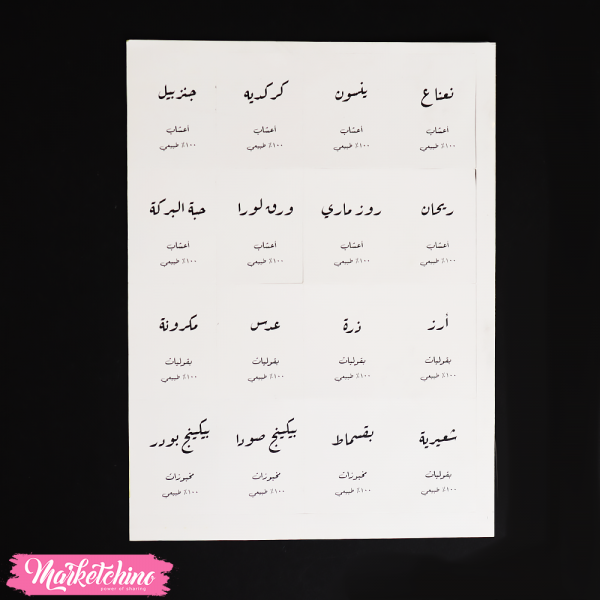 نعناع
أعشاب
١٠٠٪ طبيعي
ينسون
أعشاب
١٠٠٪ طبيعي
كركديه
أعشاب
١٠٠٪ طبيعي
جنزبيل
أعشاب
١٠٠٪ طبيعي
ريحان
أعشاب
١٠٠٪ طبيعي
روز ماري
أعشاب
١٠٠٪ طبيعي
ورق لورا
أعشاب
١٠٠٪ طبيعي
حبة البركة
أعشاب
١٠٠٪ طبيعي
أرز
بقوليات
١٠٠٪ طبيعي
ذرة
بقوليات
١٠٠٪ طبيعي
عدس
بقوليات
١٠٠٪ طبيعي
مكرونة
بقوليات
١٠٠٪ طبيعي
شعيرية
بقوليات
١٠٠٪ طبيعي
بقسماط
مخبوزات
١٠٠٪ طبيعي
بيكينج صودا
مخبوزات
١٠٠٪ طبيعي
بيكينج بودر
مخبوزات
١٠٠٪ طبيعي
Marketchino
power of sharing